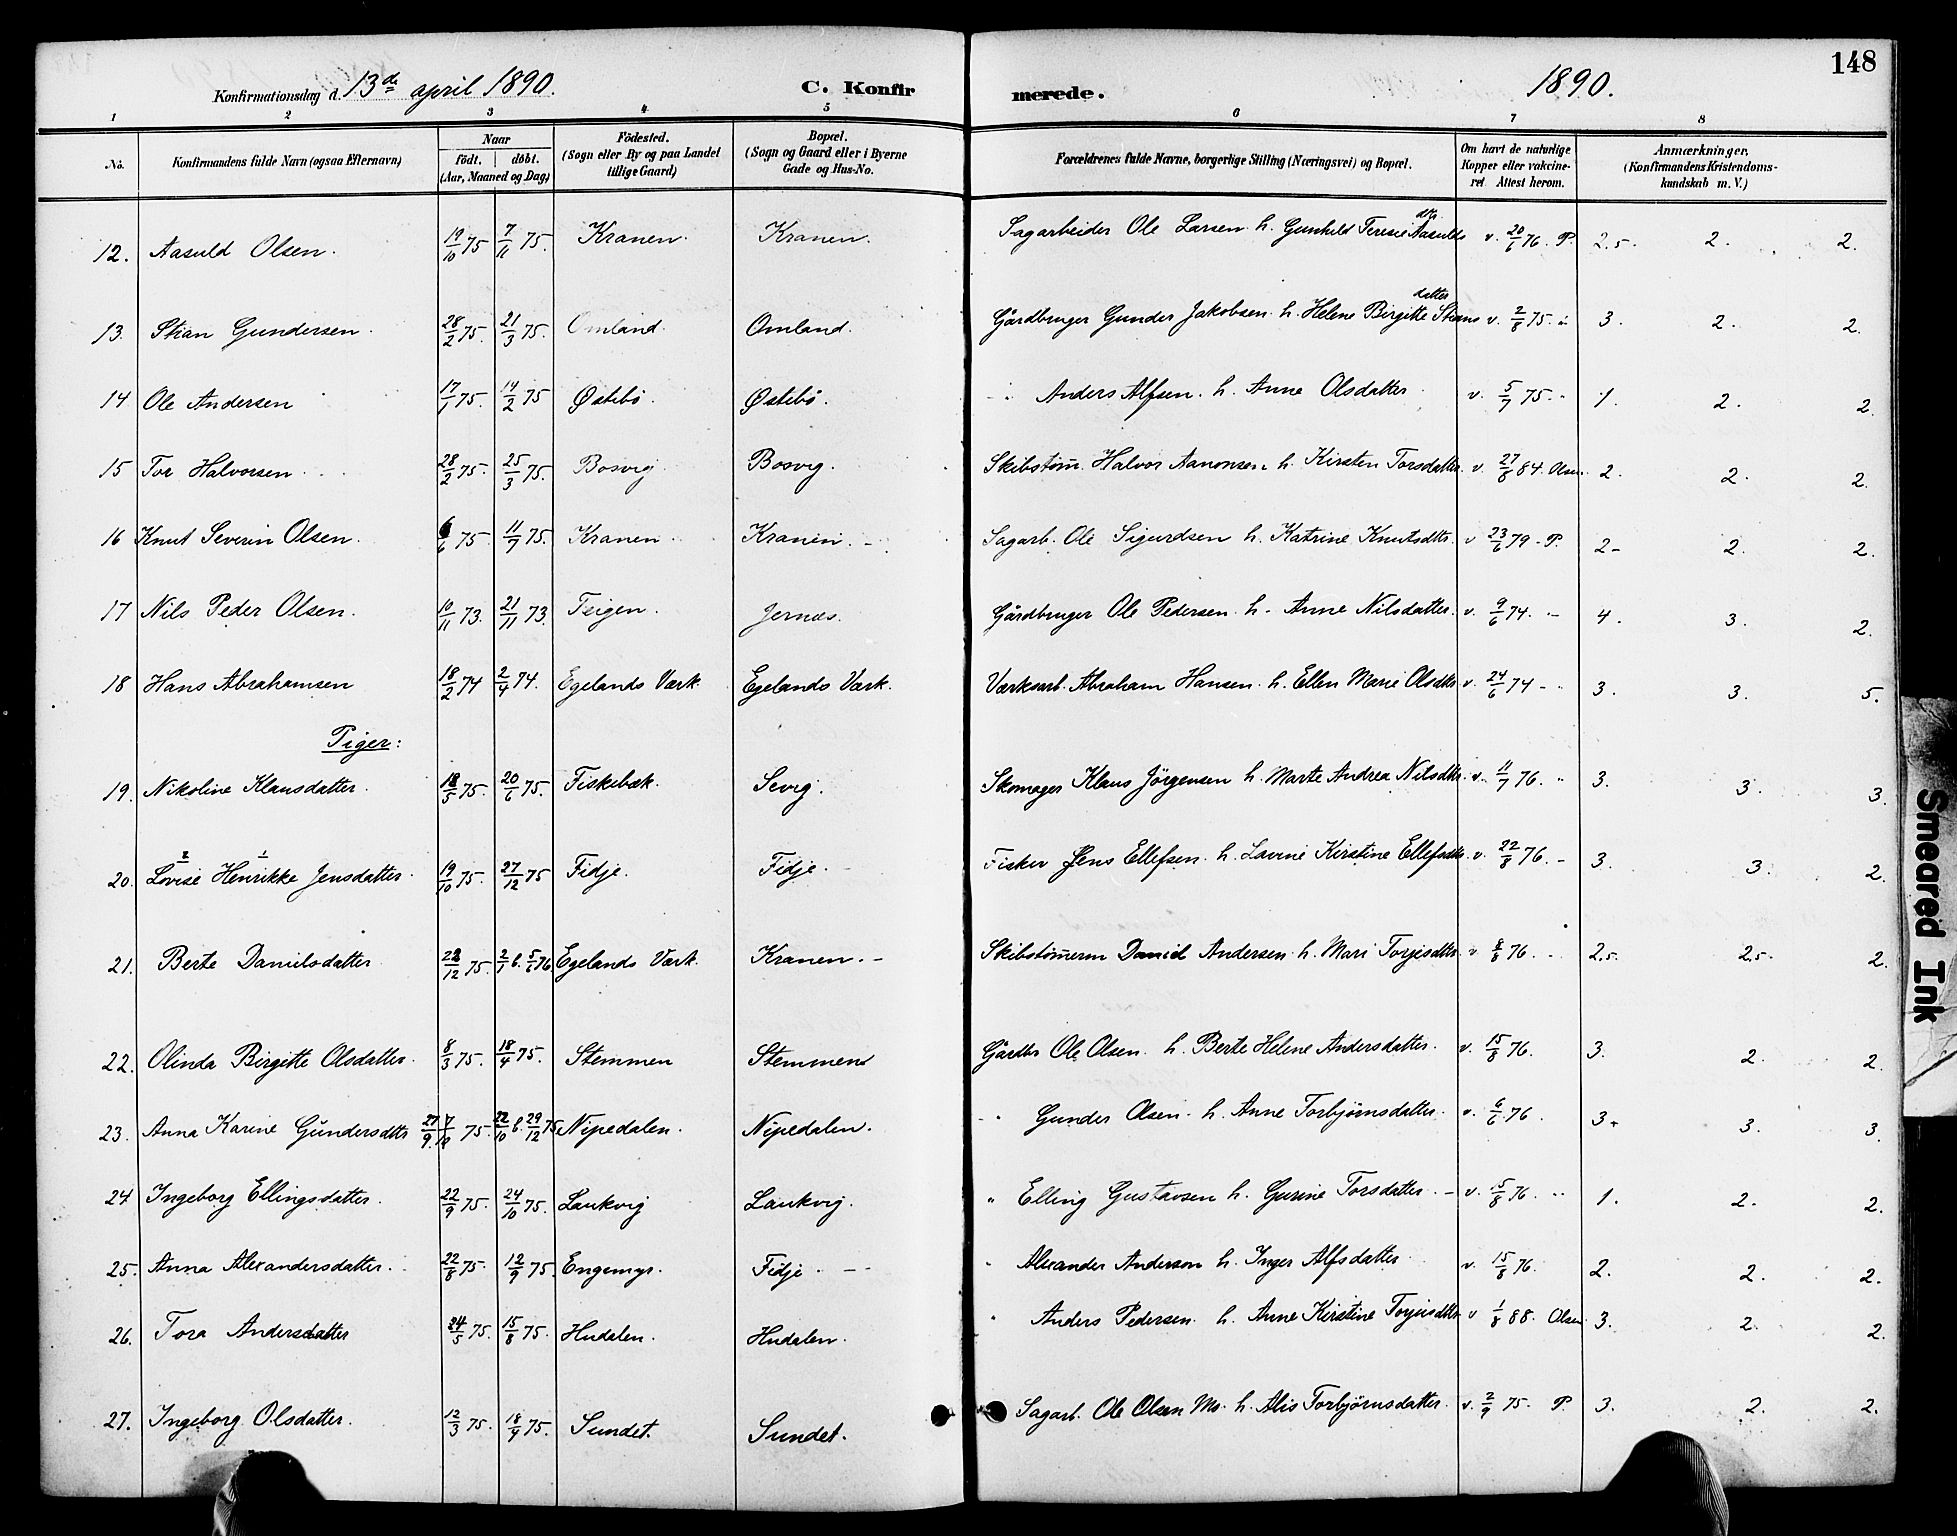 148
Konfirmationsdag d. 13de april 1890. C. Konfirmerede. 1890.
1 2 3 4 5 6 7 8
No. Konfirmandens fulde Navn (ogsaa Efternavn) Naar født. døbt. (Aar, Maaned og Dag) Fødested. (Sogn eller By og paa Landet tillige Gaard) Bopæl. (Sogn og Gaard eller i Byerne Gade og Hus-No. Forældrenes fulde Navne, borgerlige Stilling (Næringsvei) og Bopæl. Om havt de naturlige Kopper eller vakcineret Attest herom. Anmærkninger, (Konfirmandens Kristendomskundskab m. V.)
12. Aasuld Olsen. 19/10 75 7/11 75. Kranen. Kranen. Sagarbeider Ole Larsen. h. Gunhild Teresie Aasulds dtr v. 20/6 76. P. 2.5. 2. 2.
13. Stian Gundersen. 28/2 75. 21/3 75. Omland. Omland. Gårdbruger Gunder Jakobsen. h. Helene Birgitte Stians datter v. 2/8 75. 3. 2. 2.
14 Ole Andersen 17/1 75. 14/2 75 Østebø. Østebø. " Anders Alfsen. h. Anne Olsdatter v. 5/7 75. " 1. 2. 2.
15 Tor Halvorsen. 28/2 75. 25/3 75. Bosvig. Bosvig. Skibstøm. Halvor Aanonsen. h. Kirsten Torsdatter. v. 27/8 84. Olsen 2. 2. 2.
16 Knut Severin Olsen. 6/6 75. 11/7 75. Kranen Kranen. Sagarb. Ole Sigurdsen h. Katrine Knutsdtr. v 23/6 79 - P. 2- 2. 2.
17 Nils Peder Olsen. 10/11 73. 21/11 73. Teigen. Jernæs. Gårdbruger Ole Pedersen. h. Anne Nilsdatter. v. 9/6 74. - 4. 3. 2.
18 Hans Abrahamsen 18/2 74 2/4 74. Egelands Værk. Egelands Værk. Værksarb. Abraham Hansen. h. Ellen Marie Olsdtr v. 24/6 74 - 3. 3. 5.
Piger:
19. Nikoline Klausdatter. 18/5 75. 20/6 75. Fiskebæk. Sevig. Skomager Klaus Jörgensen h. Marte Andrea Nilsdtr. v. 11/7 76. " 3. 3. 3.
20. Lovise Henrikke Jensdatter. 2 1 19/10 75. 27/12 75 Fidje. Fidje. Fisker Jens Ellefsen. h. Lavine Kirstine Ellefsdtr. v. 22/8 76. - 3. 3. 2.
21. Berte Danielsdatter 28/12 75. 2/1 b. 5/6 76 Egelands Værk. Kranen. - Skibstømerm Daniel Andersen. h. Mari Torjisdtr. v 8/8 76. 2.5. 2.5. 2.
22. Olinda Birgitte Olsdatter. 8/3 75. 18/4 75. Stemmen Stemmen Gårdbr Ole Olsen. h. Berte Helene Andersdatter. v. 15/8 76. 3. 2. 2.
23. Anna Karine Gündersdtr 27/9. 75. 22/10 b. 29/12 75. Nipedalen. Nipedalen. " Gunder Olsen. h. Anne Torbjørnsdatter. v. 6/6 76. 3+ 3. 3.
24 Ingeborg Ellingsdatter. 22/9 75. 24/10 75. Laukvig Laukvig. " Elling Gustavsen h. Gurine Torsdatter. - v. 15/8 76. " 1. 2. 2.
25. Anna Alexandersdatter. 22/8 75. 12/9 75. Engemyr. Fidje. " Alexander Anderson h. Inger Alfsdatter v. 15/8 76. 2. 2. 2.
26. Tora Andersdatter 24/5 75. 15/8 75. Hudalen. Hudalen. " Anders Pedersen. h. Anne Kirstine Torjusdtr v 1/8 88. Olsen. 3. 2. 2.
27. Ingeborg Olsdatter. 12/3 75. 18/4 75. Sundet. Sundet. Sagarb. Ole Olsen Mo. h. Alis Torbjørnsdatter. v. 2/9 75. P. 3. 2. 2.
Smeared Ink